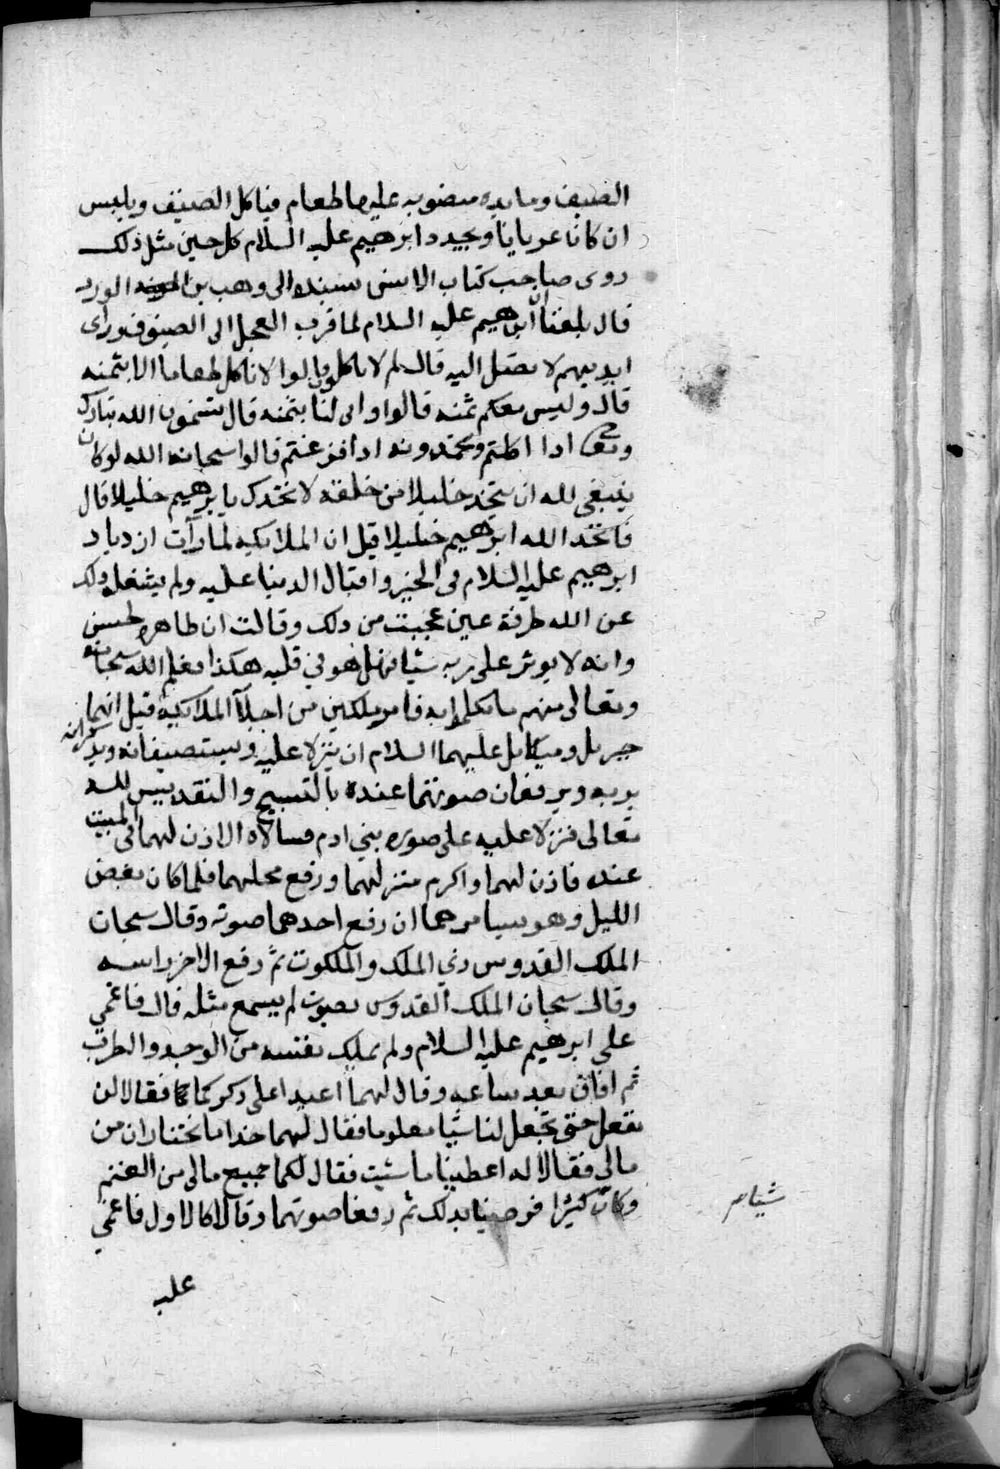 الضيف ومايده منصوبه عليها طعام فياكل الضيف ويلبس
ان كان عريانا ويجدد ابرهيم عليه السلام كل حين مثل ذلك
روى صاحب كتاب الانس بسنده الى وهب بن الورد
قال بلغنا ان ابرهيم عليه السلام لما قرب العجل الى الضيوف وراى
ايديهم لا تصل اليه قال لم لا تاكلون قالوا لا ناكل طعاما الا بثمنه
قال وليس معكم ثمنه قالوا وانى لنا بثمنه قال تسمون الله تبارك
وتعالى اذا اكلتم وتحمدونه اذا فرغتم قالوا سبحان الله لو كان
ينبغي لله ان يتخذ خليلا من خلقه لاتخذك يا ابرهيم خليلا قال
فاتخذ الله ابرهيم خليلا قيل ان الملايكه لما رآت ازدياد
ابرهيم عليه السلام في الخير واقبال الدنيا عليه ولم يشغله ذلك
عن الله طرفة عين عجبت من ذلك وقالت ان ظاهره لحسن
وانه لا يوثر على ربه شيا فهل هو في قلبه هكذا فعلم الله سبحانه
وتعالى منهم ما تكلموا به فامر ملكين من اجلآ الملايكة قيل انهما
جبريل وميكايل عليهما السلام ان ينزلا عليه ويستضيفانه ويذكرانه
بربه ويرفعان صوتهما عنده بالتسبيح والتقديس لله
تعالى فنزلا عليه على صوره بني ادم فسالاه الاذن لهما في المبيت
عنده فاذن لهما واكرم منزلهما ورفع محلهما فلما كان بعض
الليل وهو يسامرهما ان رفع احدهما صوته وقال سبحان
الملك القدوس ذي الملك والملكوت ثم رفع الاخر راسه
وقال سبحان الملك القدوس بصوت لم يسمع مثله قال فاغمي
على ابرهيم عليه السلام ولم يملك نفسه من الوجد والطرب
ثم افاق بعد ساعه وقال لهما اعيدا على ذكركما فقالا لن
نفعل حتى تجعل لنا شيا معلوما فقال لهما خذا ما تختاران من
مالي فقالا له اعطينا ما شيت فقال لكما جميع مالي من الغنم
وكان كثيرا فرضيا بذلك ثم رفعا صوتهما وقالا كالاول فاغمي
عليه